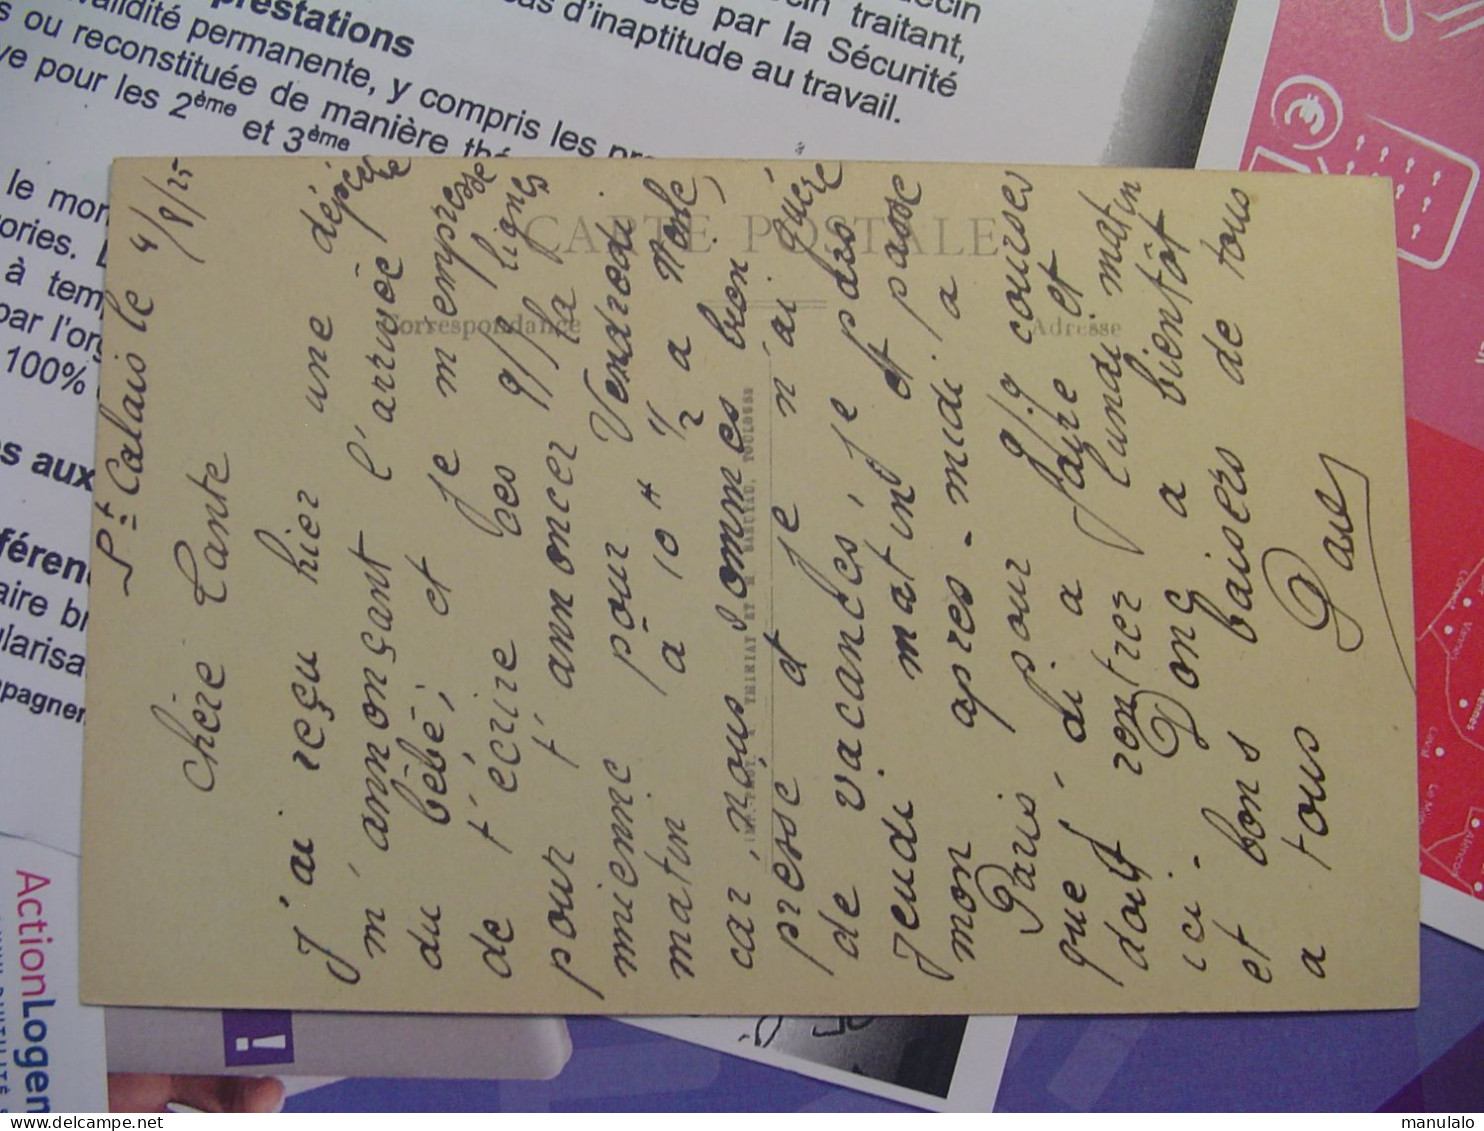 St Calais le 4/8/25
Chère Tante
J'ai reçu hier une dépêche
m'annonçant l'arrivée de
du bébé; et je m'empresse
de t'écrire ces qq lignes
pour t'annoncer la
mienne pour Vendredi
matin à 10 H 1/2 a
car nous sommes bien
presse et je n'ai guère
de vacances, je pars
jeudi matin et passe
mon après-midi a
Paris pour qq courses
que j'ai a faire et
doit rentrer lundi matin
ici. Donc a bientôt
et bons baisers de tous
a tous
CARTE POSTALE
Correspondance
Adresse
IMP. PHOT. A. THIRIAT ET BASUYAU, TOULOUSE
prestations
validité permanente, y compris les
s ou reconstituée de manière
ve pour les 2ème et 3ème
cas d'inaptitude au travail.
sée par la Sécurité
cin traitant,
decin
le mor
ories.
à tem
par l'org
100%
s aux
féren
aire br
ularisa
mpagner
ActionLogem
manulalo